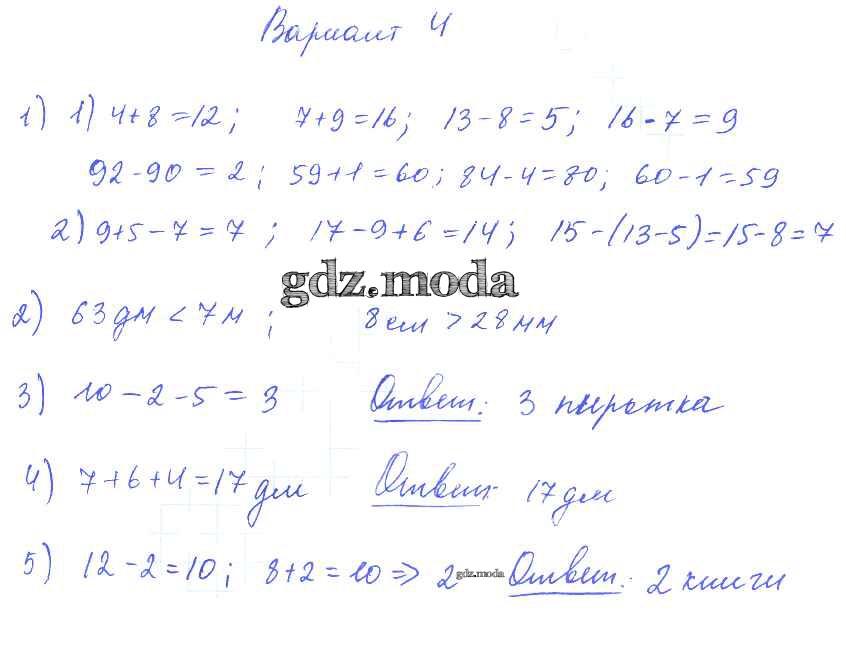 Вариант 4
1) 1) 4+8=12; 7+9=16; 13-8=5; 16-7=9
92-90=2; 59+1=60; 84-4=80; 60-1=59
2) 9+5-7=7; 17-9+6=14; 15-(13-5)=15-8=7
gdz.moda
2) 63 дм < 7 м; 8 см > 28 мм
3) 10-2-5=3 Ответ: 3 пирожка
4) 7+6+4=17 дм Ответ: 17 дм
5) 12-2=10; 8+2=10 => 2 gdz.moda Ответ: 2 книги